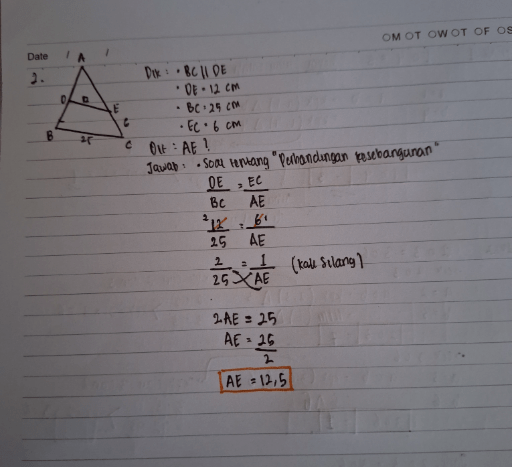 OM OT OW OT OF OS
Date / /
2.
A
D
12
E
6
B
25
C
Dik : • BC || DE
• DE = 12 cm
• BC = 25 cm
• EC = 6 cm
Dit : AE ?
Jawab : • Soal tentang "Perbandingan kesebangunan"
DE = EC
BC AE
2 12 = 6 1
25 AE
2 = 1 (kali silang)
25 AE
2AE = 25
AE = 25
2
AE = 12,5